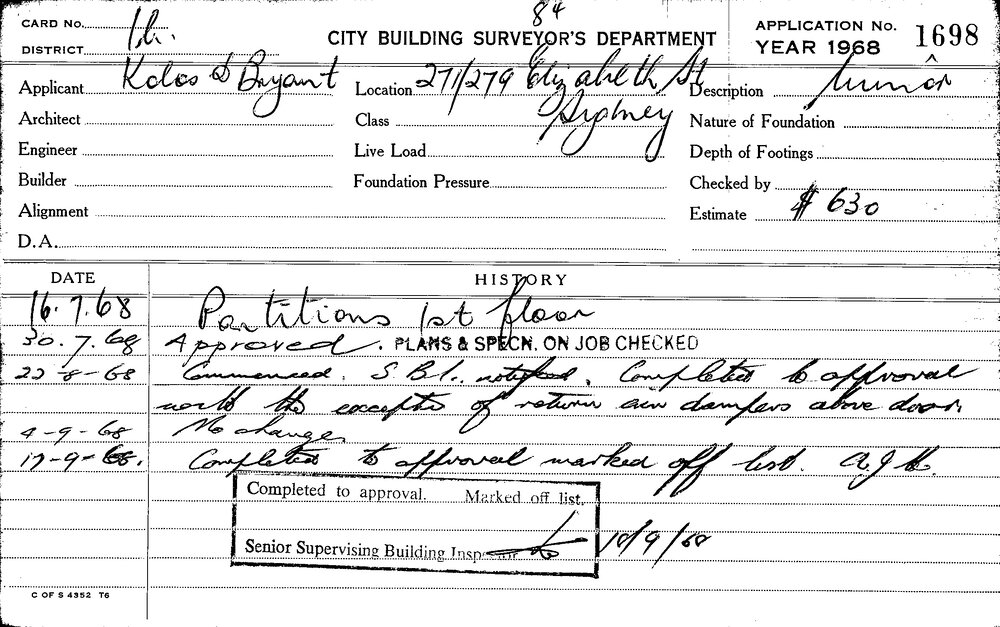 84
CARD No. 1h.
CITY BUILDING SURVEYOR'S DEPARTMENT
APPLICATION No. 1698
YEAR 1968
DISTRICT
Applicant Kolos & Bryant
Location 271/279 Elizabeth St
Sydney
Description Minor
Architect
Class
Nature of Foundation
Engineer
Live Load
Depth of Footings
Builder
Foundation Pressure
Checked by
Alignment
Estimate $ 630
D.A.
DATE HISTORY
16.7.68 Partitions 1st floor
30.7.68 Approved. PLANS & SPECN. ON JOB CHECKED
22-8-68 Commenced. S.B.I. notified. Completed to approval
with the exception of return air dampers above door.
4-9-68 No change
17-9-68. Completed to approval marked off list.
Completed to approval. Marked off list.
Senior Supervising Building Inspector 18/9/68
C OF S 4352 T6